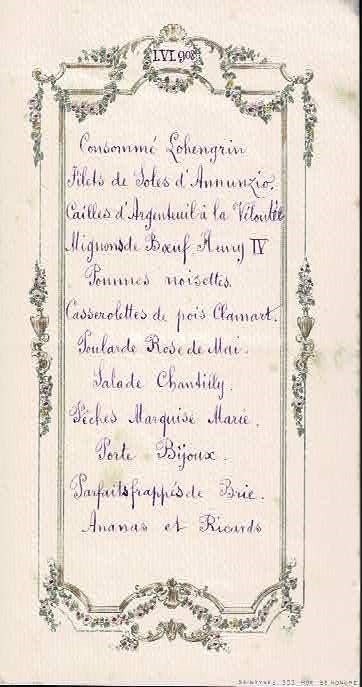 1.VI.908
Consommé Lohengrin
Filets de Soles d'Annunzio.
Cailles d'Argenteuil à la Veloutée
Mignons de Bœuf Henry IV
Pommes noisettes.
Casserolettes de pois Clamart.
Poularde Rose de Mai.
Salade Chantilly.
Pêches Marquise Marie.
Porte Bijoux.
Parfaits frappés de Brie.
Ananas et Ricards